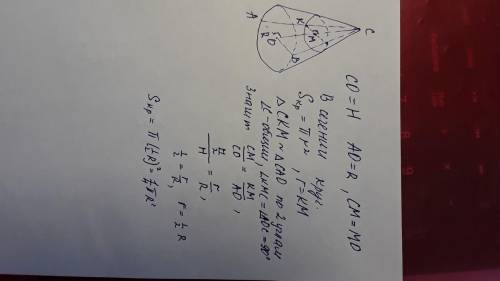 CO=H AO=R, CM=MO
В сечении круг.
Sкр = πr², r=KM
△CKM ~ △CAO по 2 углам
∠C-общий, ∠KMC=∠AOC=90°
Значит CM/CO = KM/AO,
H/2/H = r/R,
1/2 = r/R, r = 1/2 R
Sкр = π(1/2R)² = 1/4πR²
C
K
r
M
A
R
O
B